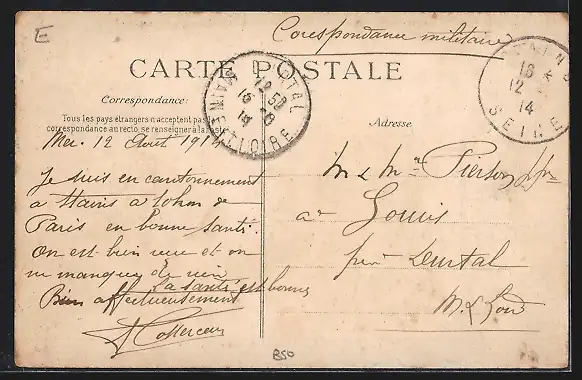 E
Corespondance militaire
CARTE POSTALE
Correspondance:
Tous les pays étrangers n'acceptent pas la
correspondance au recto, se renseigner à la Poste
Adresse
DURTAL
12 50
16 - 8
14
MAINE ET LOIRE
18
12
14
SEINE
12 Août 1914
Je suis en cantonnement
à
Paris en bonne santé.
On est bien vue et on
ne manques de rien
La santé est bonne
Bien affectueusement
M & Mme Pierson
à Louis
près Durtal
M. & Loir
BSO